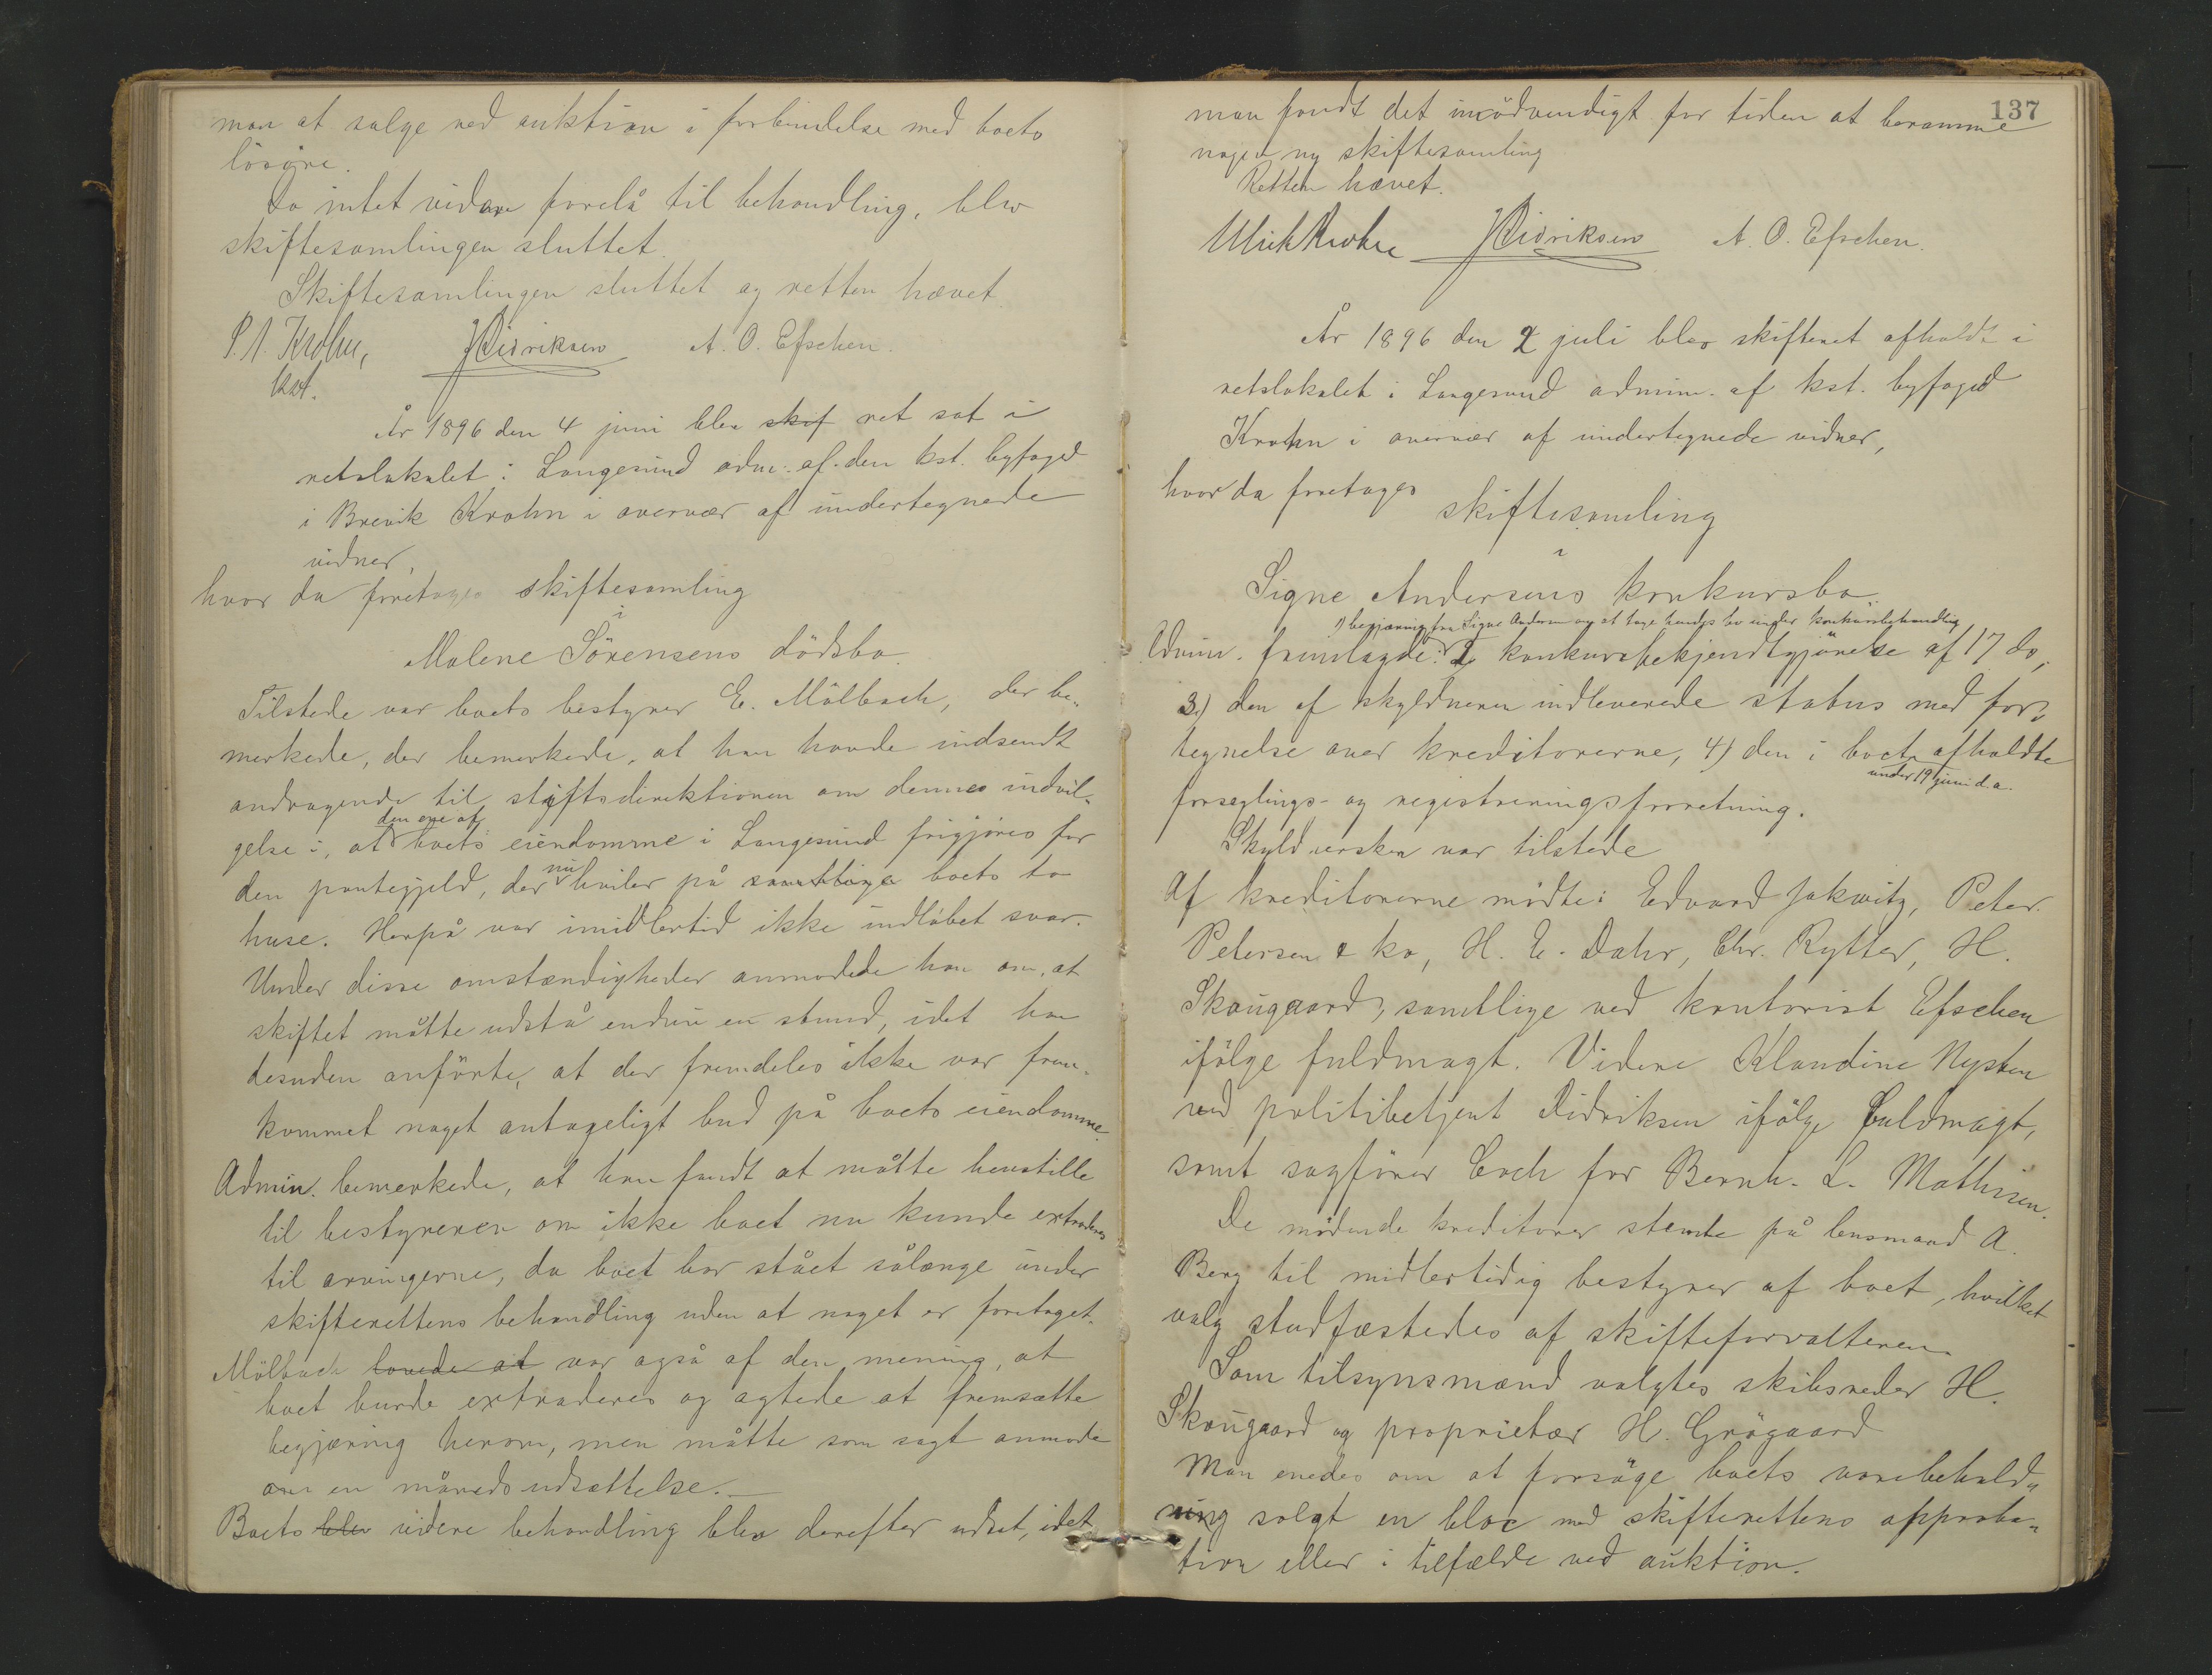 man at sælge ved auktion i forbindelse med boets
lösöre.
Da intet videre forelå til behandling, blev
skiftesamlingen sluttet.
Skiftesamlingen sluttet og retten hævet.
Krohn, JDidriksen A. O. Efschen.
kst.
År 1896 den 4 juni blev skif ret sat i
retslokalet i Langesund adm. af den kst. byfoged
i Brevik Krohn i overvær af undertegnede
vidner,
hvor da foretages skiftesamling
i
Malene Sörensens dödsbo.
Tilstede var boets bestyrer E. Mölbach, der be-
merkede, der bemerkede, at han havde indsendt
andragende til stiftsdirektionen om dennes indvil-
gelse i, at den ene af boets eiendomme i Langesund frigjöres for
den pantegjeld, der nu hviler på samtlige boets to
huse. Herpå var imidlertid ikke indløbet svar.
Under disse omstændigheder anmodede han om, at
skiftet måtte udstå endnu en stund, idet han
desuden anförte, at der fremdeles ikke var frem-
kommet noget antageligt bud på boets eiendomme.
Admin. bemerkede, at han fandt at måtte henstille
til bestyreren om ikke boet nu kunde extraderes
til arvingerne, da boet har stået sålænge under
skifterettens behandling uden at noget er foretaget.
Mölbach lovede at var også af den mening, at
boet burde extraderes og agtede at fremsætte
begjæring herom, men måtte som sagt anmode
om en måneds udsættelse.
Boets blev videre behandling blev derefter udsat, idet
137
man fandt det unödvendigt for tiden at beramme
nogen ny skiftesamling
Retten hævet.
Ulrich Krohn JDidriksen A. O. Efschen.
År 1896 den 2 juli blev skifteret afholdt i
retslokalet i Langesund admin. af kst. byfoged
Krohn i overvær af undertegnede vidner,
hvor da foretages
skiftesamling
i
Signe Andersens konkursbo.
1) begjæring fra Signe Andersen om at tage hendes bo under konkursbehandling
Admin. fremlagde: 2 konkursbekjendtgjörelse af 17 ds,
3) den af skyldneren indleverede status med for-
tegnelse over kreditorerne, 4) den i boet afholdte
under 19 juni d.a.
forseglings- og registreringsforretning.
Skyldnersken var tilstede
Af kreditorerne mödte: Edvard Jakwitz, Peter
Petersen & ko, H. E. Dahr, Chr. Rytter, H.
Skougaard, samtlige ved kontorist Efschen
ifölge fuldmagt. Videre Klaudine Nysten
ved politibetjent Didriksen ifölge fuldmagt,
samt sagförer Coch for Bernh. L. Mathisen.
De mödende kreditorer stemte på lensmand A.
Berg til midlertidig bestyrer af boet, hvilket
valg stadfæstedes af skifteforvalteren.
Som tilsynsmænd valgtes skibsreder H.
Skougaard og proprietær H. Grögaard
Man enedes om at forsöge boets varebehold-
ning solgt en bloc med skifterettens approba-
tion eller i tilfælde ved auktion.